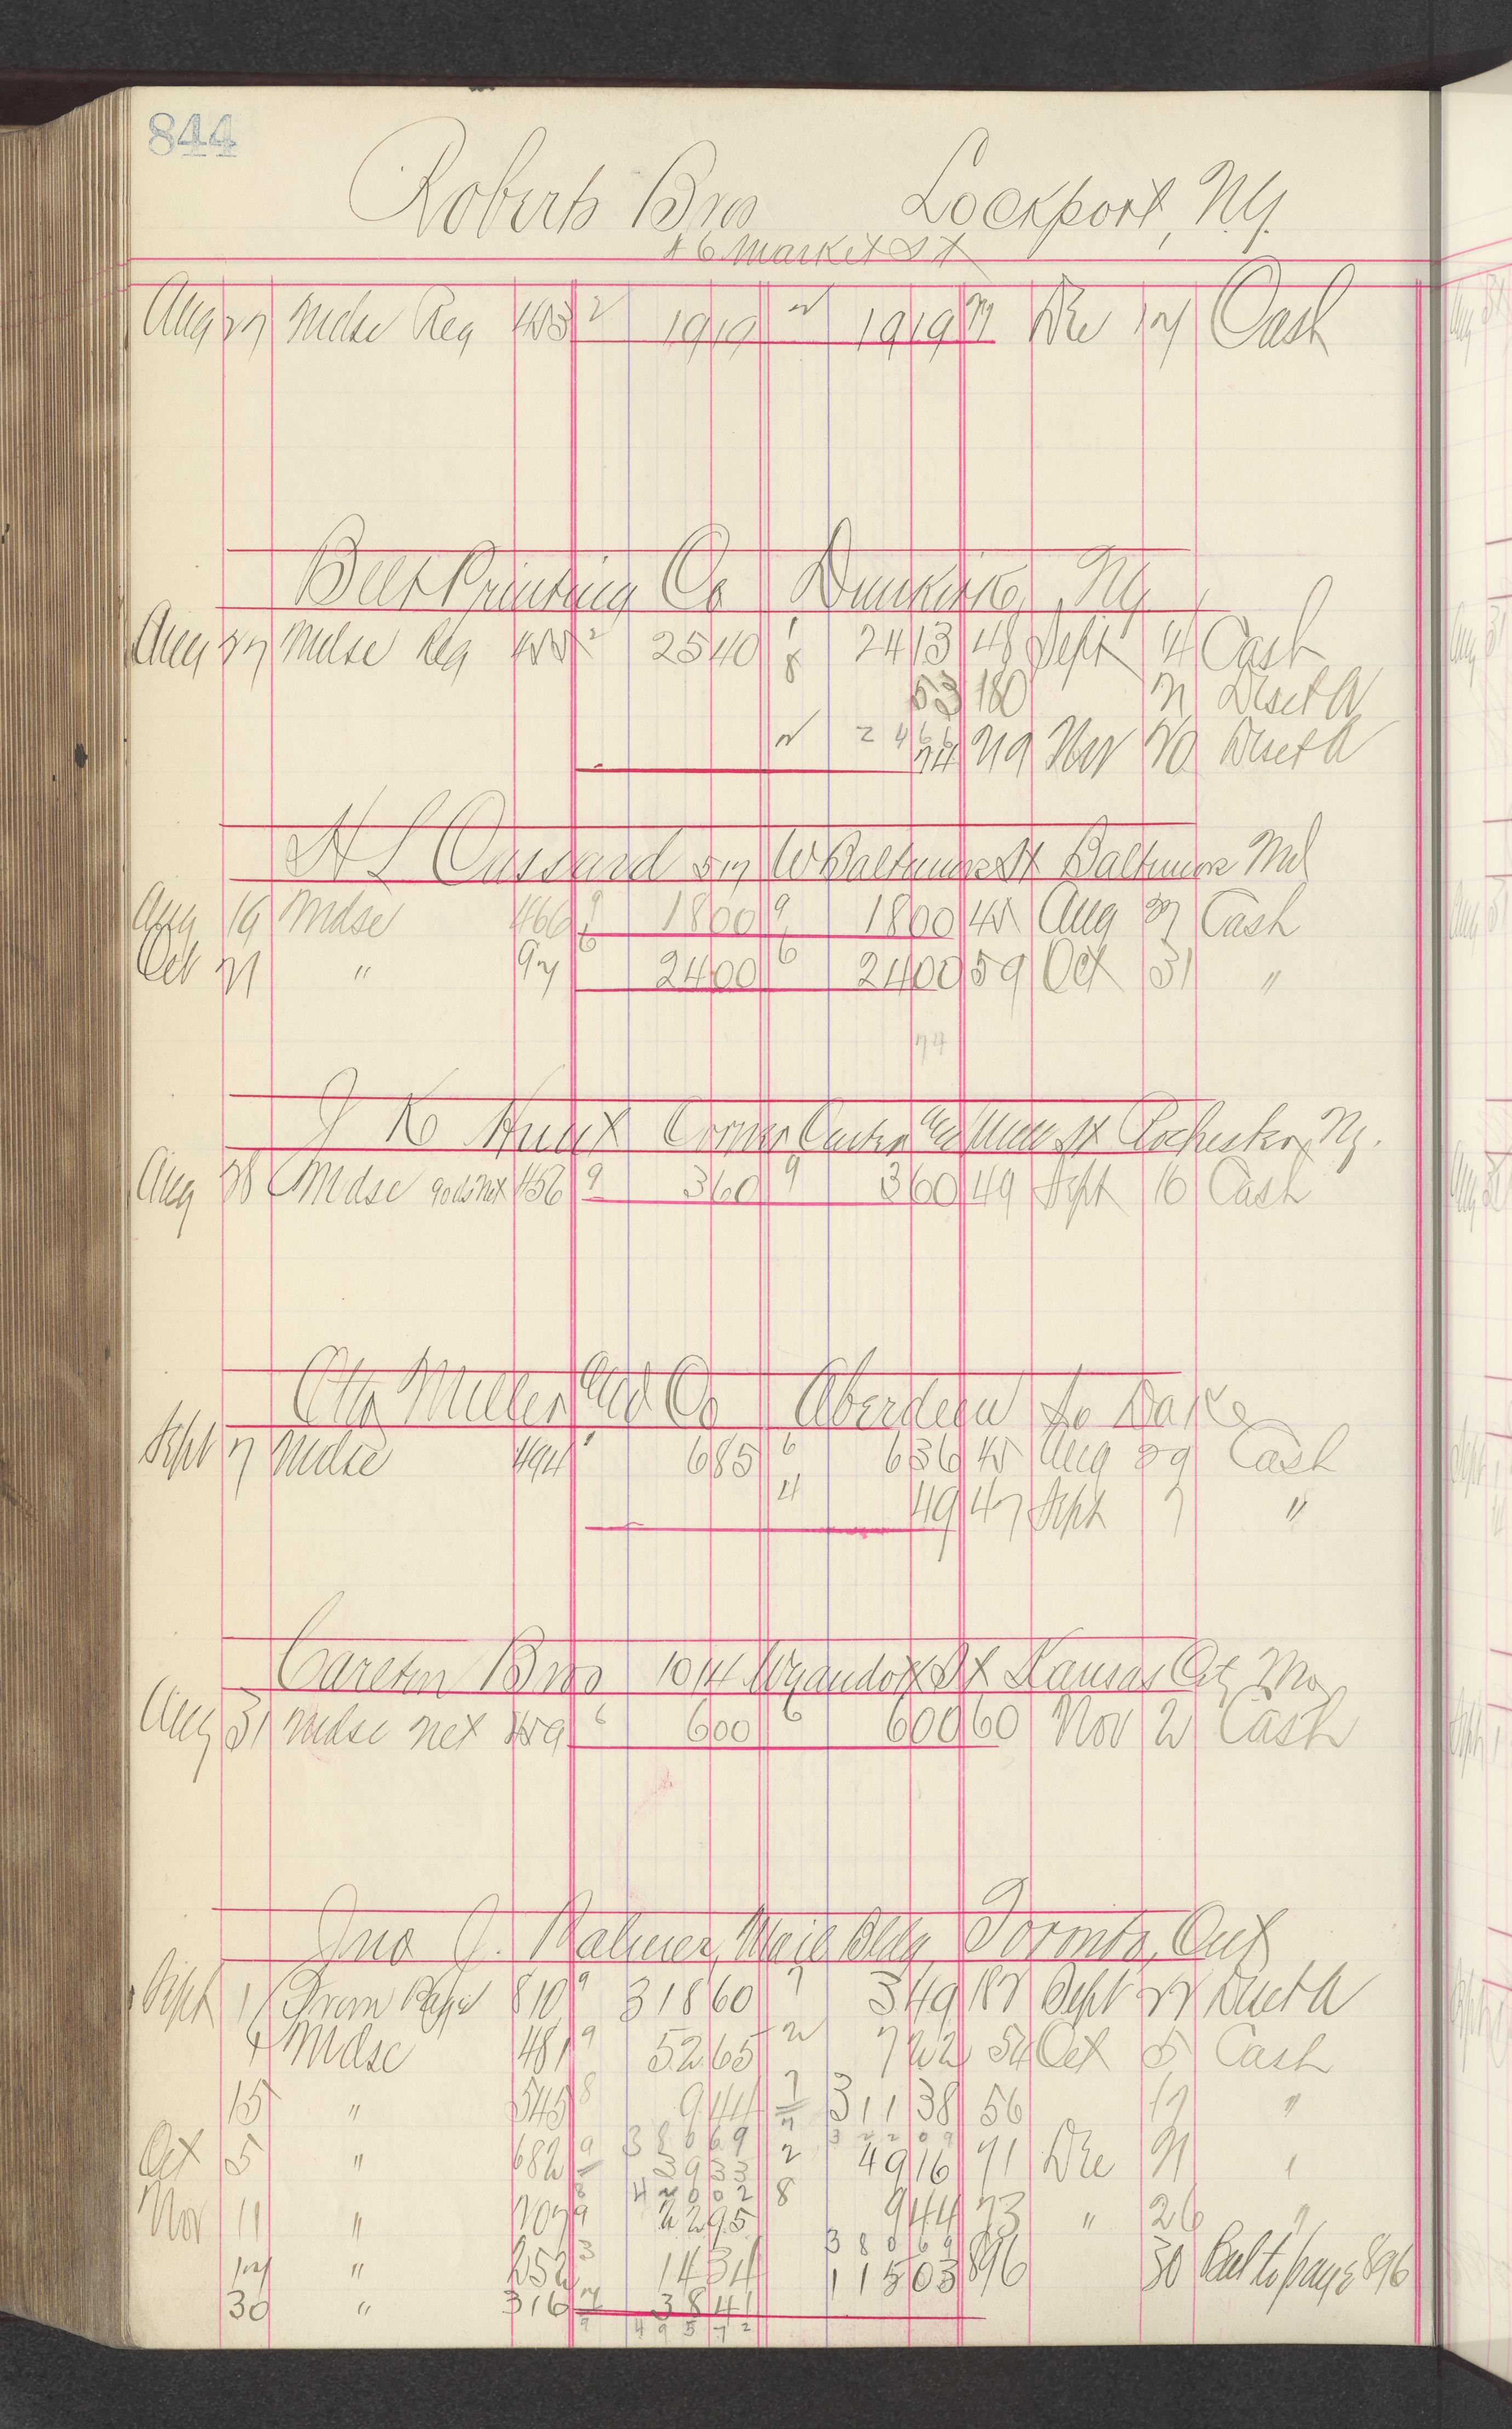 844
Roberts Bros Lockport, N.Y.
16 Market St
Aug 27 Mdse Reg 453 2 1919 2 1919 71 Dec 17 Cash
Belt Printing Co Dunkirk, N.Y.
Aug 27 Mdse Reg 455 2 2540 1 2413 48 Sept 4 Cash
8 53 180 Disct A
2 2466
74 219 Nov 20 Disct A
A L Cussard 57 W Baltimore St Baltimore Md
Aug 19 Mdse 466 9 1800 9 1800 45 Aug 27 Cash
Oct 21 " 97 6 2400 6 2400 59 Oct 31 "
74
J K Hunt Corner Center and Mill St Rochester, N.Y.
Aug 28 Mdse 90 ds net 456 9 360 9 360 49 Sept 16 Cash
Otto Miller Co Aberdeen So Dak
Sept 7 Mdse 494 1 685 6 636 45 Aug 29 Cash
4 49 47 Sept 7 "
Careton Bros 1014 Wyandott St Kansas City Mo
Aug 31 Mdse net 459 6 600 6 600 60 Nov 2 Cash
Jno J. Palmer, Mail Bldg Toronto, Ont
Sept 1 From Page 810 9 31860 7 349 187 Sept 22 Disct A
4 Mdse 481 9 5265 2 722 54 Oct 5 Cash
15 " 545 8 944 7 31138 56 17 "
38069 7 32209
Oct 5 " 682 9 3933 2 4916 71 Dec 21 "
8 42002 8
Nov 11 " 207 9 2295 944 73 " 26 "
38069
17 " 252 3 1434 11503 896 30 Bal to page 896
30 " 316 7 3841
9 49572